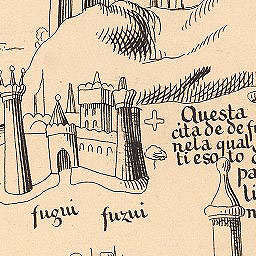 Questa
cita de de fu
nela qual
ti eso to
pa
li
fugui fuzui